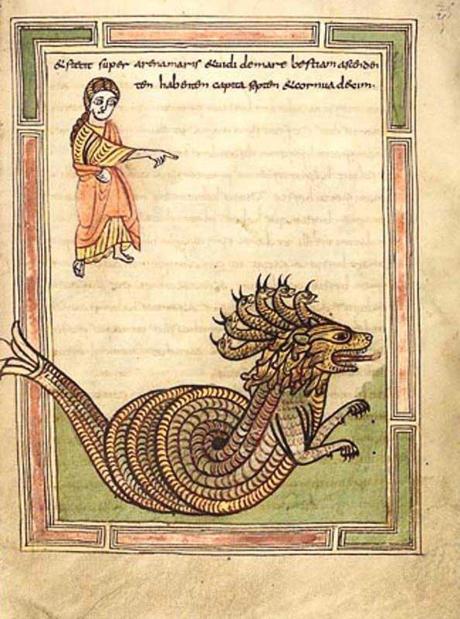 & stetit super arenam maris & vidi de mare bestiam ascenden
tem habentem capita septem & cornua decim·